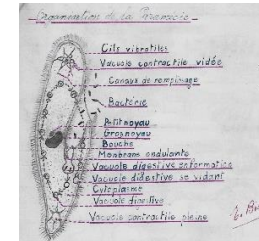 Organisation de la Paramécie
Cils vibratiles
Vacuole contractile vidée
Canaux de remplissage
Bactérie
Petit noyau
Gros noyau
Bouche
Membrane ondulante
Vacuole digestive en formation
Vacuole didestive se vidant
Cytoplasme
Vacuole digestive
Vacuole contractile pleine